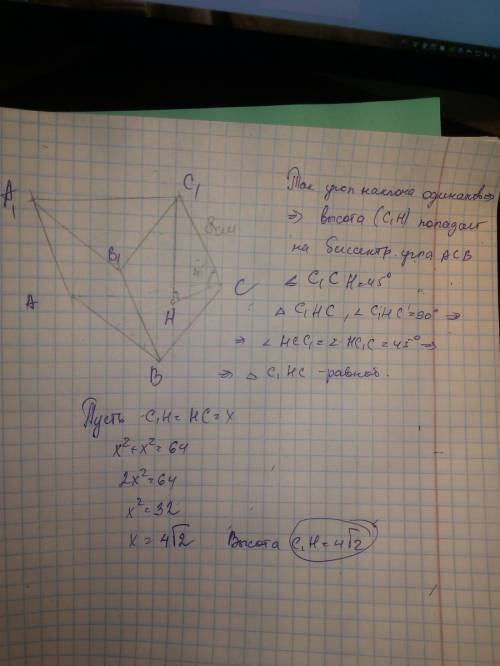 A₁
C₁
8см
B₁
45°
C
A
H
B
Так угол наклона одинаков ⇒
⇒ высота (C₁H) попадает
на биссектр. угла ACB
∠ C₁CH=45°
△ C₁HC, ∠C₁HC=90° ⇒
⇒ ∠HCC₁=∠HC₁C=45° ⇒
⇒ △ C₁HC -равноб.
Пусть C₁H=HC=x
x²+x²=64
2x²=64
x²=32
x=4√2 Высота C₁H=4√2